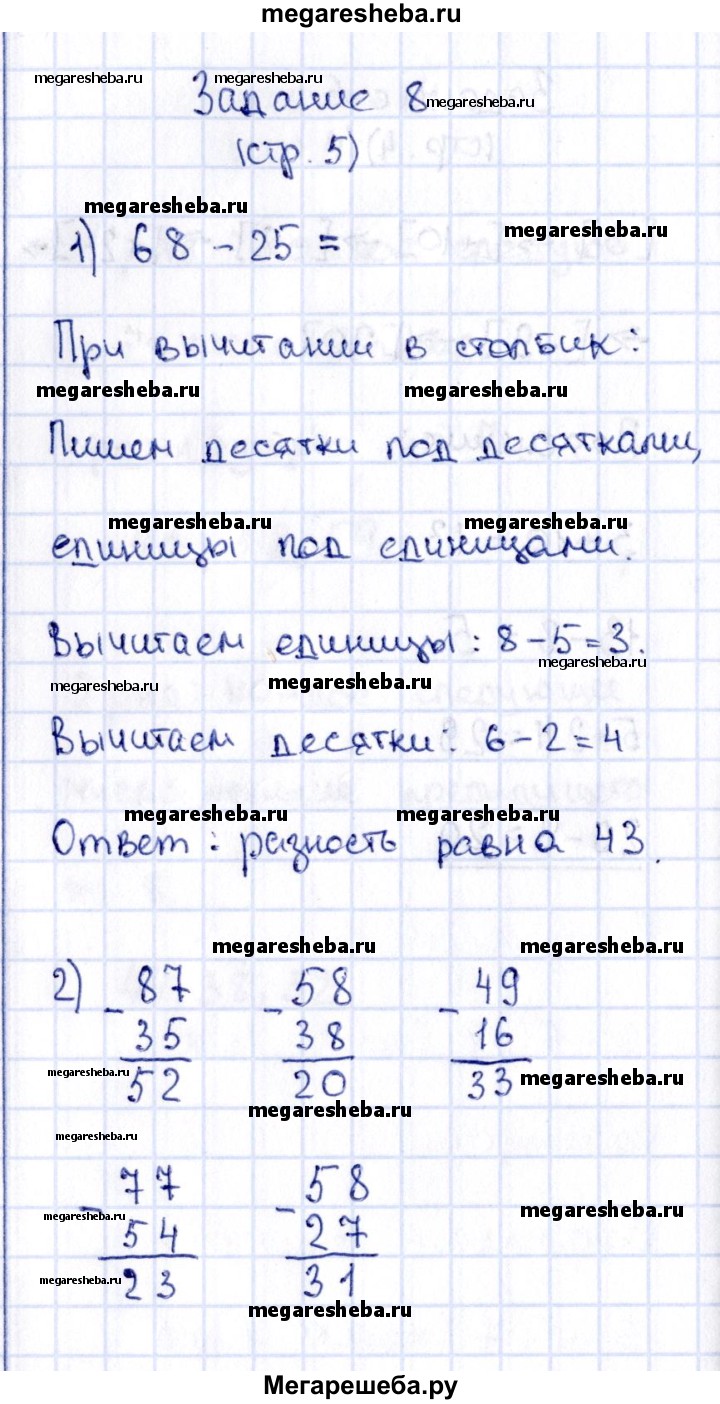 megaresheba.ru
megaresheba.ru megaresheba.ru
Задание 8 megaresheba.ru
(стр. 5)
megaresheba.ru
1) 68 - 25 = megaresheba.ru
При вычитании в столбик:
megaresheba.ru megaresheba.ru
Пишем десятки под десятками,
megaresheba.ru megaresheba.ru
единицы под единицами.
Вычитаем единицы: 8 - 5 = 3.
megaresheba.ru
megaresheba.ru megaresheba.ru
Вычитаем десятки: 6 - 2 = 4
megaresheba.ru megaresheba.ru
Ответ: разность равна 43.
megaresheba.ru megaresheba.ru
2) - 87 - 58 - 49
35 38 16
52 20 33
megaresheba.ru megaresheba.ru
megaresheba.ru
megaresheba.ru
- 77 - 58
megaresheba.ru megaresheba.ru
54 27
23 31
megaresheba.ru
megaresheba.ru
Мегарешеба.ру